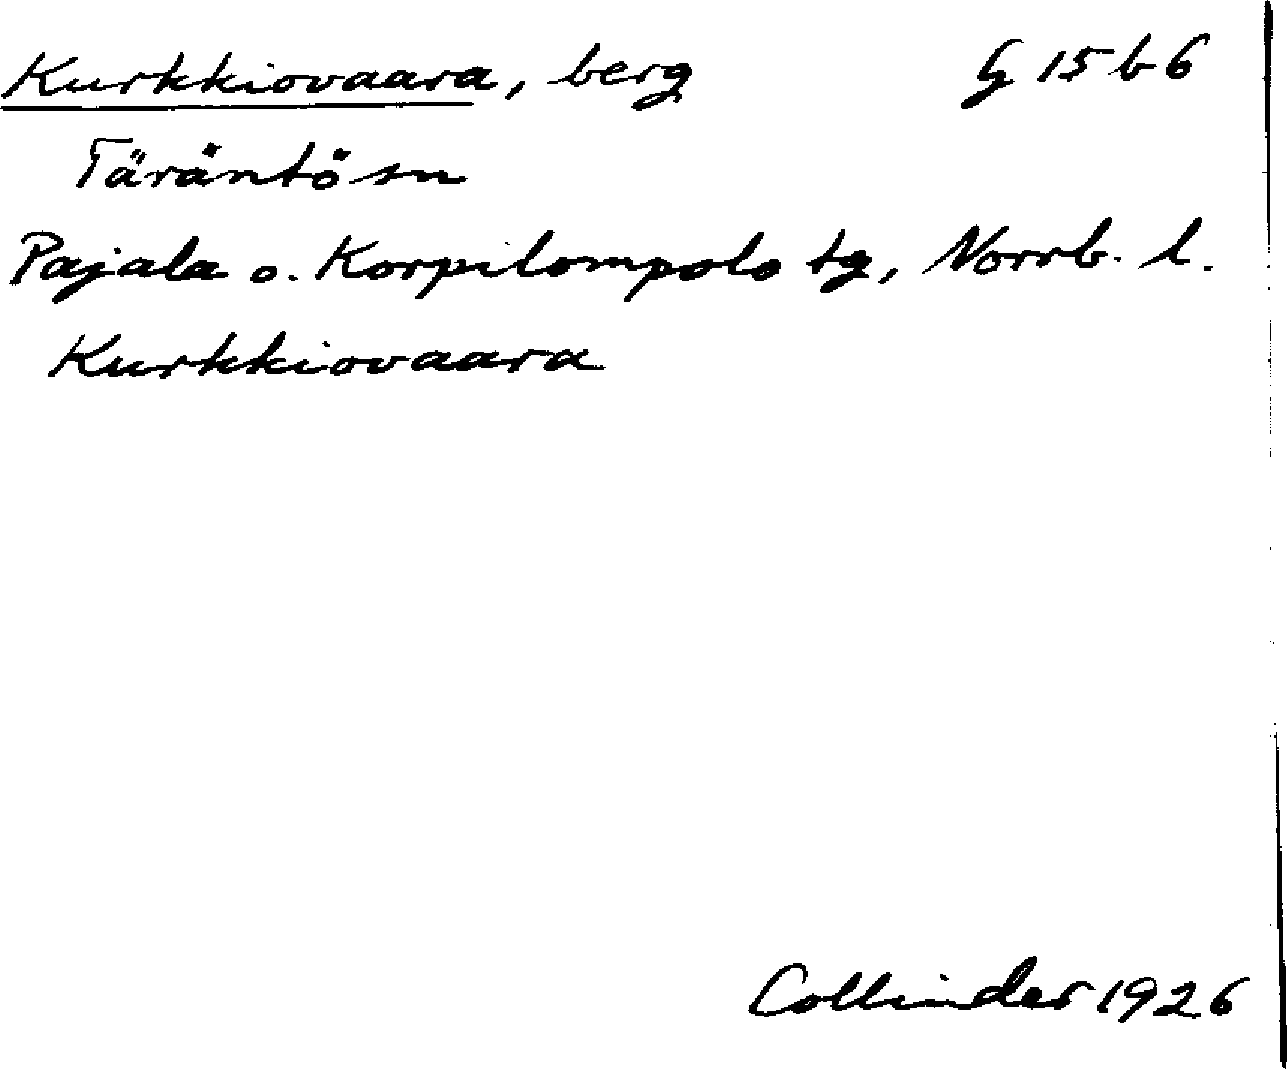 Kurkkiovaara, berg G 15 b 6
Täräntö sn
Pajala o. Korpilompolo tg, Norrb. l.
Kurkkiovaara
Collinder 1926